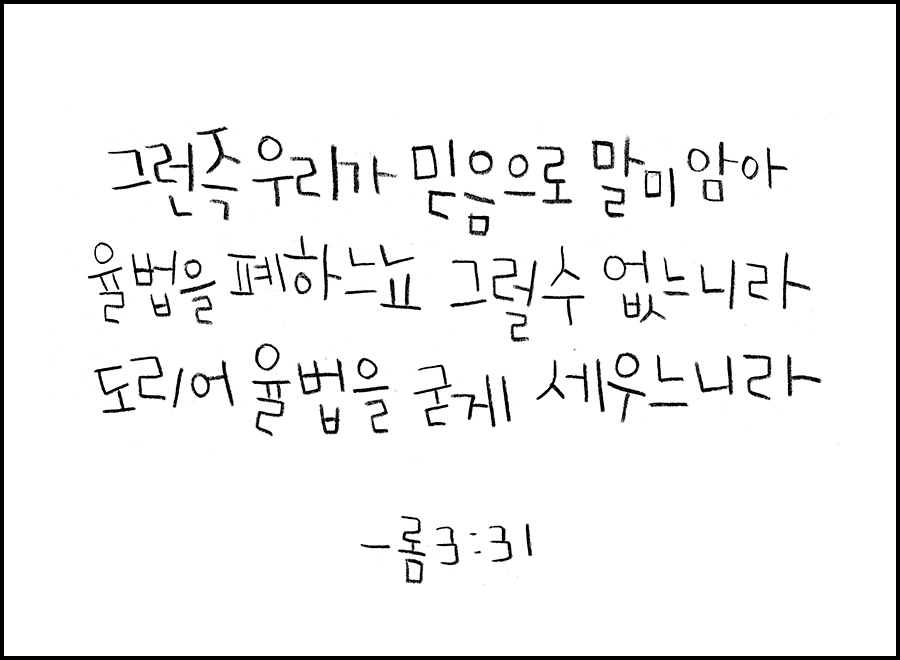 그런즉 우리가 믿음으로 말미암아
율법을 폐하느뇨 그럴수 없느니라
도리어 율법을 굳게 세우느니라
-롬3:31